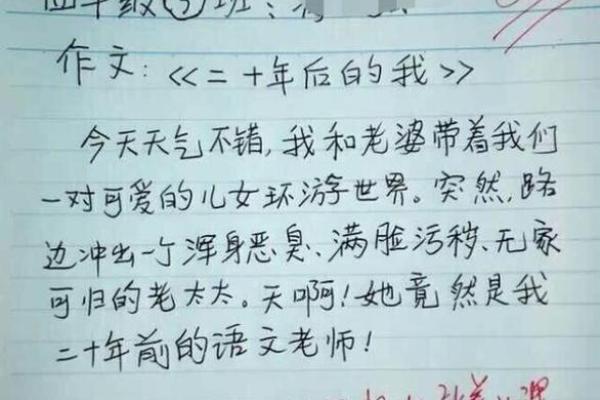 四年级③班：
作文：《二十年后的我》
今天天气不错，我和老婆带着我们
一对可爱的儿女环游世界。突然，路
边冲出一个浑身恶臭、满脸污秽、无家
可归的老太太。天啊！她竟然是我
二十年前的语文老师！